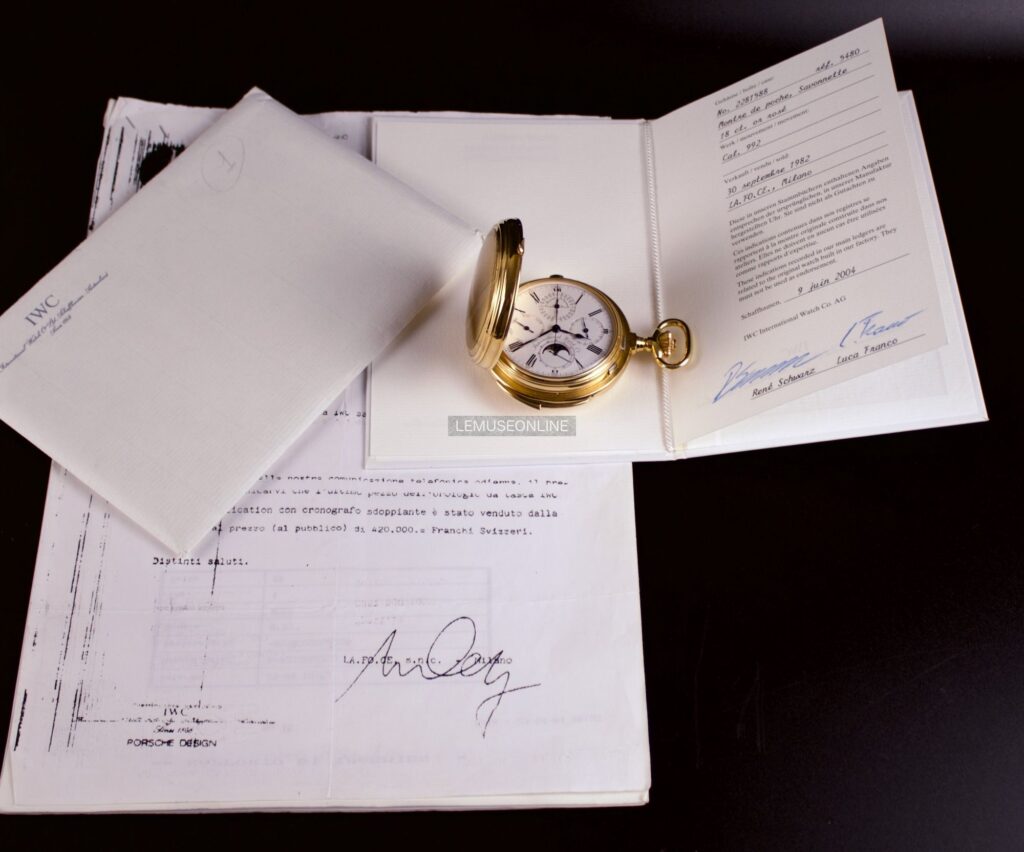 1
IWC
International Watch Co Ltd. Schaffhausen Switzerland
Since 1868
Gehäuse / boîte / case réf. 5480
No. 2281588
Montre de poche, Savonnette
18 ct. or rosé
Werk / mouvement / movement
Cal. 992
Verkauft / vendu / sold
30 septembre 1982
IA.FO.CE., Milano
Diese in unseren Stammbüchern enthaltenen Angaben
entsprechen der ursprünglichen, in unserer Manufaktur
hergestellten Uhr. Sie sind nicht als Gutachten zu
verwenden.
Ces indications contenues dans nos registres se
rapportent à la montre originale construite dans nos
ateliers. Elles ne doivent en aucun cas être utilisées
comme rapports d'expertise.
These indications recorded in our main ledgers are
related to the original watch built in our factory. They
must not be used as endorsement.
Schaffhausen, 9 juin 2004
IWC International Watch Co. AG
René Schwarz Luca Franco
LEMUSEONLINE
IWC
nostra comunicazione telefonica odierna, il
che l'ultimo pezzo dell'orologio da tasca IWC
con cronografo sdoppiante è stato venduto dalla
al prezzo (al pubblico) di 420.000.= Franchi Svizzeri.
Distinti saluti.
IA.FO.CE. s.n.c. Milano
IWC
Since 1868
PORSCHE DESIGN